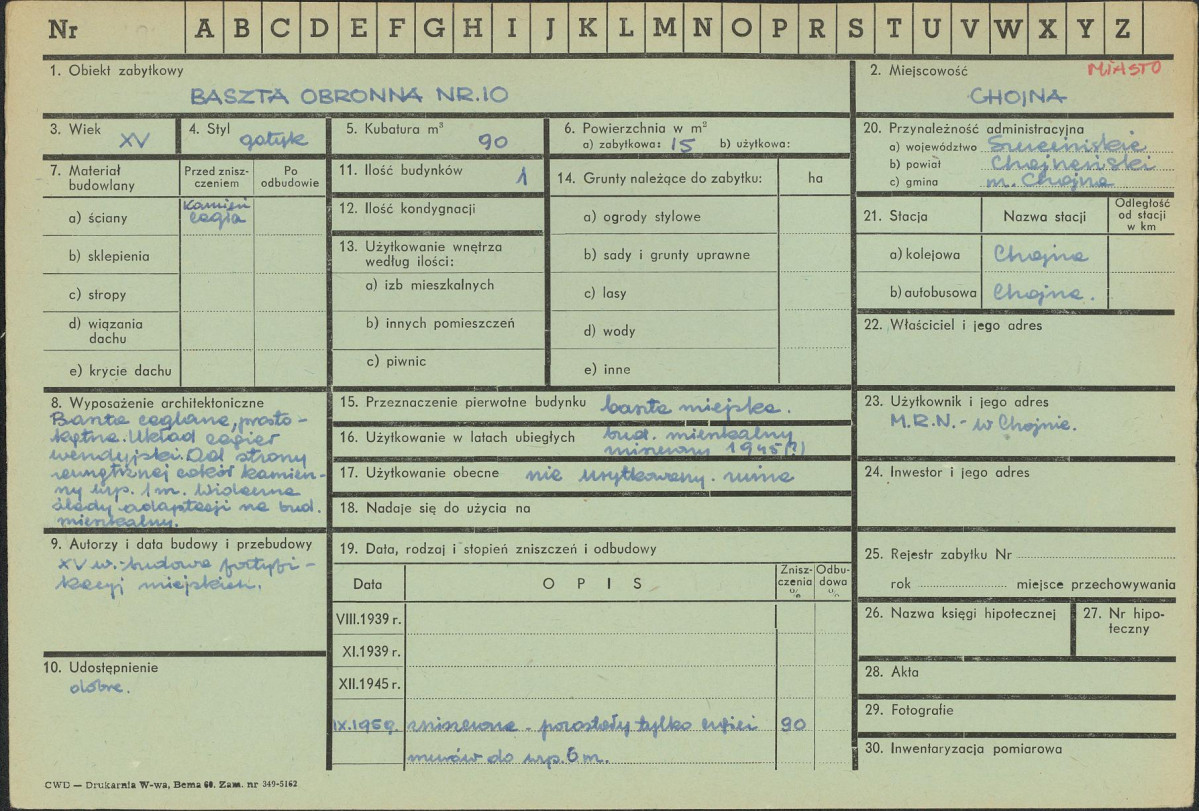 Nr A B C D E F G H I J K L M N O P R S T U V W X Y Z
1. Obiekt zabytkowy
BASZTA OBRONNA NR.10
2. Miejscowość
MIASTO
CHOJNA
3. Wiek
XV
4. Styl
gotyk
5. Kubatura m³
90
6. Powierzchnia w m²
a) zabytkowa: 15 b) użytkowa:
20. Przynależność administracyjna
a) województwo Szczecińskie
b) powiat Chojneński
c) gmina m. Chojna
7. Materiał budowlany
Przed zniszczeniem
Po odbudowie
a) ściany
kamień
cegła
b) sklepienia
c) stropy
d) wiązania
dachu
e) krycie dachu
11. Ilość budynków 1
12. Ilość kondygnacji
13. Użytkowanie wnętrza
według ilości:
a) izb mieszkalnych
b) innych pomieszczeń
c) piwnic
14. Grunty należące do zabytku: ha
a) ogrody stylowe
b) sady i grunty uprawne
c) lasy
d) wody
e) inne
21. Stacja Nazwa stacji
Odległość
od stacji
w km
a) kolejowa Chojna
b) autobusowa Chojna.
22. Właściciel i jego adres
8. Wyposażenie architektoniczne
Baszta ceglana, prosto-
kątna. Układ cegieł
wendyjski. Od strony
zewnętrznej cokół kamien-
ny wys. 1 m. Widoczne
ślady adaptacji na bud.
mieszkalny.
15. Przeznaczenie pierwotne budynku baszta miejska.
16. Użytkowanie w latach ubiegłych bud. mieszkalny
zniszczony 1945(?)
17. Użytkowanie obecne nie użytkowany. ruina
18. Nadaje się do użycia na
23. Użytkownik i jego adres
M.R.N. - w Chojnie.
24. Inwestor i jego adres
9. Autorzy i data budowy i przebudowy
XV w. - budowa fortyfi-
kacyj miejskich.
19. Data, rodzaj i stopień zniszczeń i odbudowy
Data OPIS
Znisz-
czenia
%
Odbu-
dowa
%
VIII.1939 r.
XI.1939 r.
XII.1945 r.
IX.1959. zniszczona - pozostały tylko części 90
murów do wys. 6 m.
25. Rejestr zabytku Nr
rok miejsce przechowywania
26. Nazwa księgi hipotecznej
27. Nr hipo-
teczny
10. Udostępnienie
dobre.
28. Akta
29. Fotografie
30. Inwentaryzacja pomiarowa
CWD — Drukarnia W-wa, Bema 60. Zam. nr 349-5162